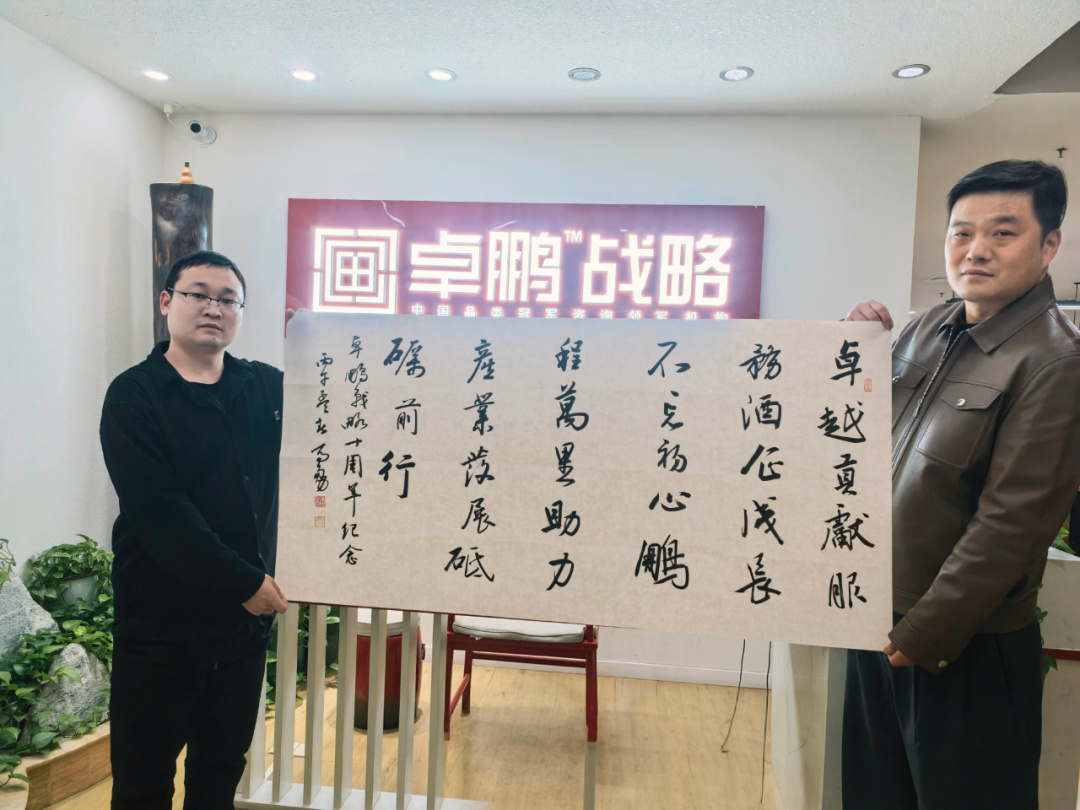 卓鹏™战略
中国品类冠军咨询领军机构
卓越貢獻服
務酒企成長
不忘初心鵬
程萬里助力
產業發展砥
礪前行
卓鵬戰略十周年纪念
丙午